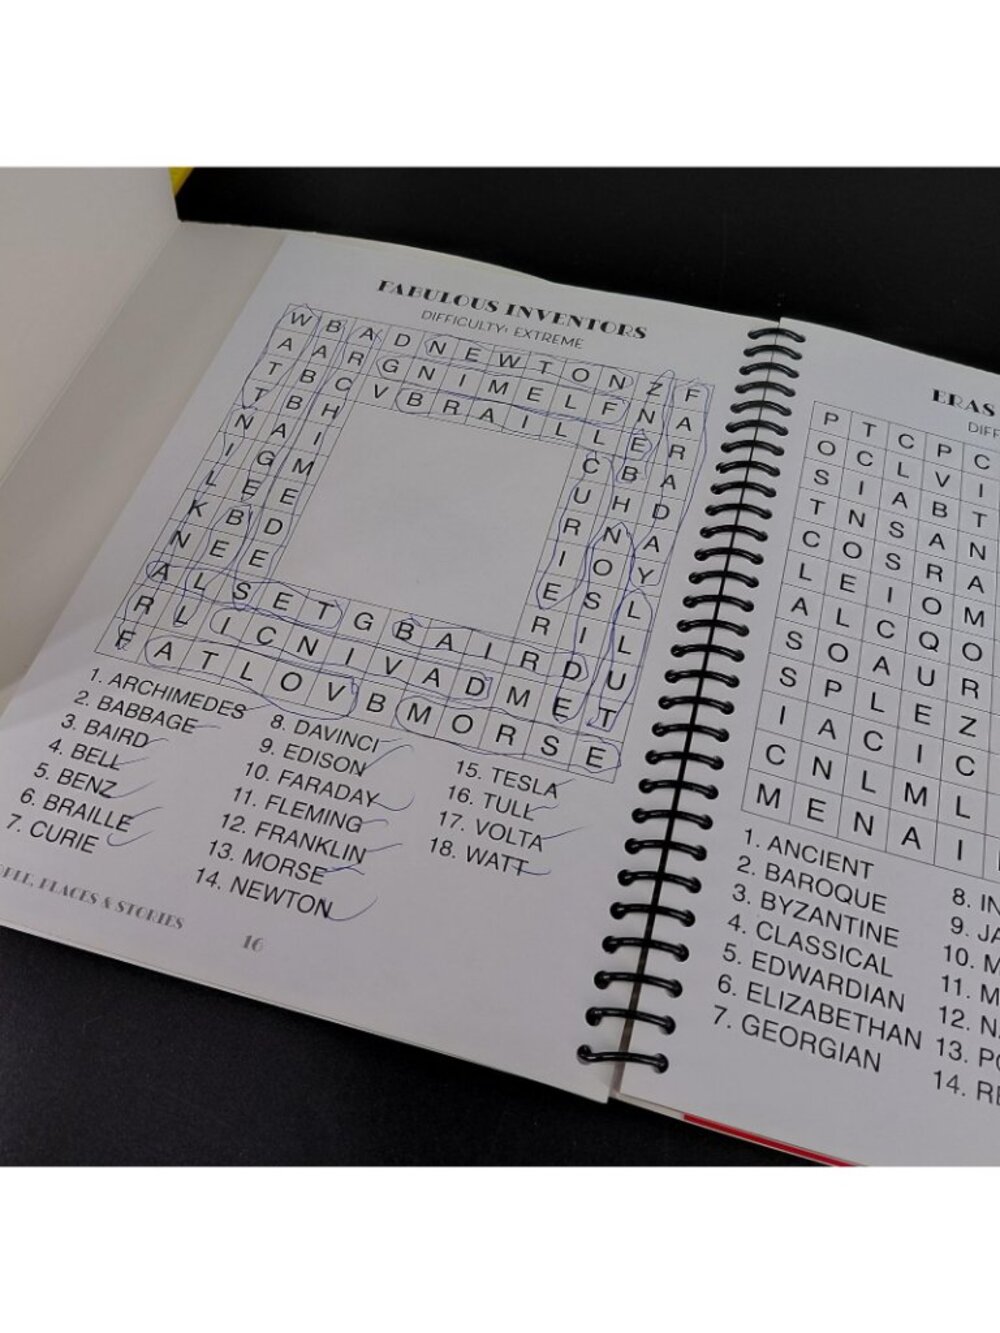 FABULOUS INVENTORS
DIFFICULTY: EXTREME
W B A D N E W T O N Z F
A A R G N I M E L F N A
T B C V B R A I L L E R
T B H C B A
N A I U H D
I G M R N A
L E E I O Y
K B D E S L
N E E R I L
A L S E T G B A I R D U
R L I C N I V A D M E T
F A T L O V B M O R S E
1. ARCHIMEDES
2. BABBAGE
3. BAIRD
4. BELL
5. BENZ
6. BRAILLE
7. CURIE
8. DAVINCI
9. EDISON
10. FARADAY
11. FLEMING
12. FRANKLIN
13. MORSE
14. NEWTON
15. TESLA
16. TULL
17. VOLTA
18. WATT
PLACES & STORIES
16
ERAS
DIFF
P T C P C
O C L V I
S I A B T
T N S A N
C O S R A
L E I O M
A L C Q O
S O A U R
S P L E Z
I A C I C
C N L M L
M E N A I
1. ANCIENT
2. BAROQUE
3. BYZANTINE
4. CLASSICAL
5. EDWARDIAN
6. ELIZABETHAN
7. GEORGIAN
8. IN
9. JA
10. M
11. M
12. N
13. PO
14. RE